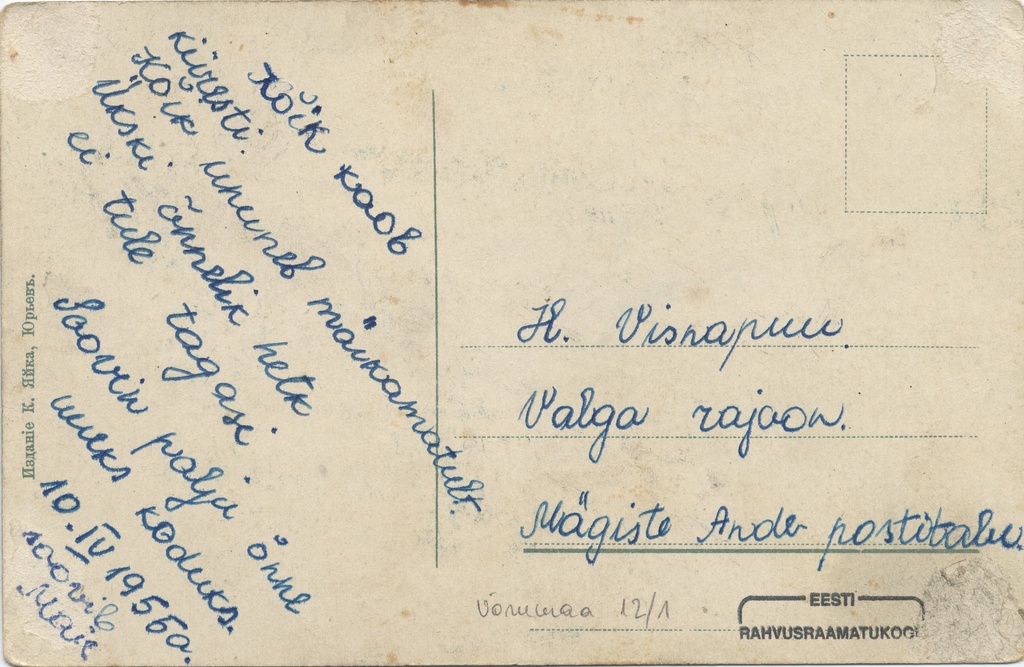 Kõik kaob
kiiresti.
Kõik ununeb märkamatult.
Ükski õnnelik hetk
ei tule tagasi.
Soovin palju õnne
uueks koduks.
10. IV 1956a.
soovib
Maie
H. Visnapuu.
Valga rajoon.
Mägiste Ande postitalu.
Võrumaa 12/1
EESTI
RAHVUSRAAMATUKOGU
Изданіе К. Яйка, Юрьевъ.